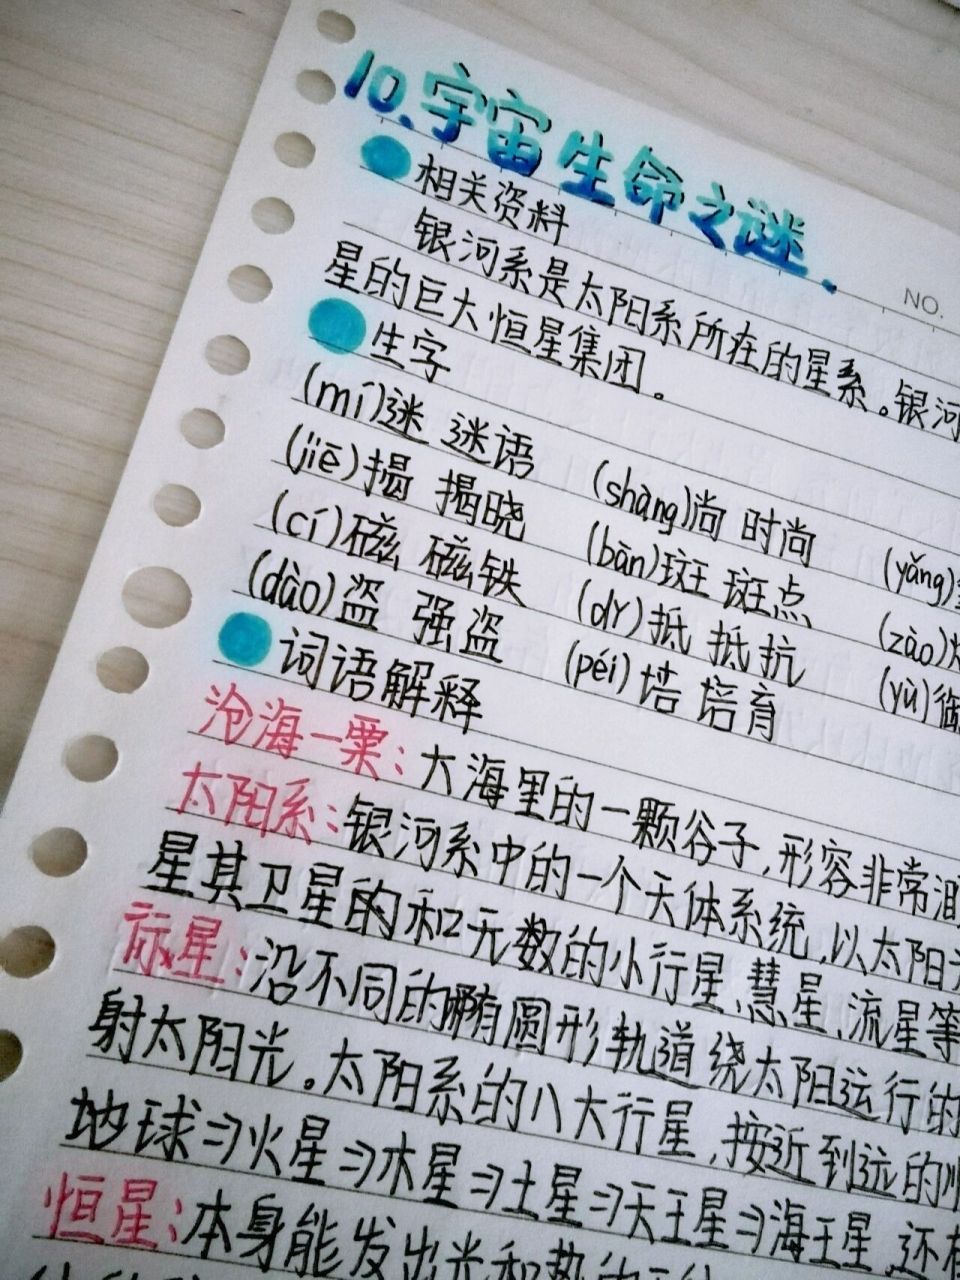 10.宇宙生命之谜.
NO.
相关资料
银河系是太阳系所在的星系。银河
星的巨大恒星集团。
生字
(mí)迷 迷语 (shàng)尚 时尚 (yǎng)
(jiē)揭 揭晓 (bān)斑 斑点 (zào)
(cí)磁 磁铁 (dǐ)抵 抵抗 (yù)
(dào)盗 强盗 (péi)培 培育
词语解释
沧海一粟:大海里的一颗谷子,形容非常
太阳系:银河系中的一个天体系统,以太阳
星其卫星的和无数的小行星、慧星、流星等
行星:沿不同的椭圆形轨道绕太阳运行的
射太阳光。太阳系的八大行星,按近到远的
地球→火星→木星→土星→天王星→海王星,还
恒星:本身能发出光和热的天